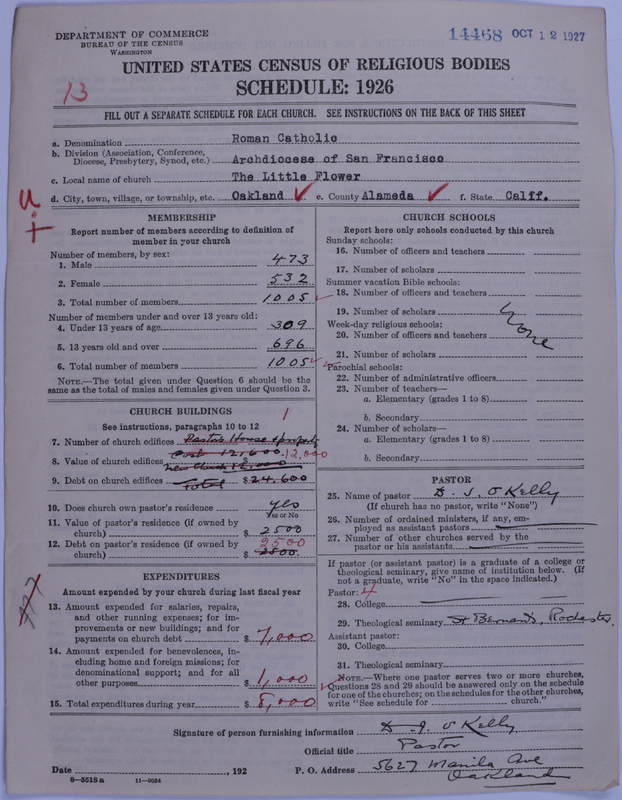 DEPARTMENT OF COMMERCE
BUREAU OF THE CENSUS
WASHINGTON
14468 OCT 12 1927
UNITED STATES CENSUS OF RELIGIOUS BODIES
SCHEDULE: 1926
13
FILL OUT A SEPARATE SCHEDULE FOR EACH CHURCH. SEE INSTRUCTIONS ON THE BACK OF THIS SHEET
a. Denomination Roman Catholic
b. Division (Association, Conference,
Diocese, Presbytery, Synod, etc.) Archdiocese of San Francisco
c. Local name of church The Little Flower
d. City, town, village, or township, etc. Oakland e. County Alameda f. State Calif.
MEMBERSHIP
Report number of members according to definition of
member in your church
Number of members, by sex:
1. Male 473
2. Female 532
3. Total number of members 1005
Number of members under and over 13 years old:
4. Under 13 years of age 309
5. 13 years old and over 696
6. Total number of members 1005
NOTE.—The total given under Question 6 should be
the same as the total of males and females given under Question 3.
CHURCH BUILDINGS
See instructions, paragraphs 10 to 12
1
7. Number of church edifices Pastor's House & property
Cost 12,600 12,000
8. Value of church edifices $
New Church 12,000
9. Debt on church edifices Total $24,600
10. Does church own pastor's residence yes
Yes or No
11. Value of pastor's residence (if owned by
church) $ 2500
12. Debt on pastor's residence (if owned by 2500
church) $ 2500.
EXPENDITURES
Amount expended by your church during last fiscal year
13. Amount expended for salaries, repairs,
and other running expenses; for im-
provements or new buildings; and for
payments on church debt $ 7,000
14. Amount expended for benevolences, in-
cluding home and foreign missions; for
denominational support; and for all
other purposes $ 1,000
15. Total expenditures during year $ 8,000
CHURCH SCHOOLS
Report here only schools conducted by this church
Sunday schools:
16. Number of officers and teachers
17. Number of scholars
Summer vacation Bible schools:
18. Number of officers and teachers
19. Number of scholars
None
Week-day religious schools:
20. Number of officers and teachers
21. Number of scholars
Parochial schools:
22. Number of administrative officers
23. Number of teachers—
a. Elementary (grades 1 to 8)
b. Secondary
24. Number of scholars—
a. Elementary (grades 1 to 8)
b. Secondary
PASTOR
25. Name of pastor D. J. O'Kelly
(If church has no pastor, write "None")
26. Number of ordained ministers, if any, em-
ployed as assistant pastors
27. Number of other churches served by the
pastor or his assistants
If pastor (or assistant pastor) is a graduate of a college or
theological seminary, give name of institution below. (If
not a graduate, write "No" in the space indicated.)
Pastor:
28. College
29. Theological seminary St Bernard's, Rochester
Assistant pastor:
30. College
31. Theological seminary
NOTE.—Where one pastor serves two or more churches,
Questions 28 and 29 should be answered only on the schedule
for one of the churches; on the schedules for the other churches,
write "See schedule for church."
Signature of person furnishing information D. J. O'Kelly
Official title Pastor
Date , 192 P. O. Address 5627 Manila Ave
Oakland
8-5518a 11-9034